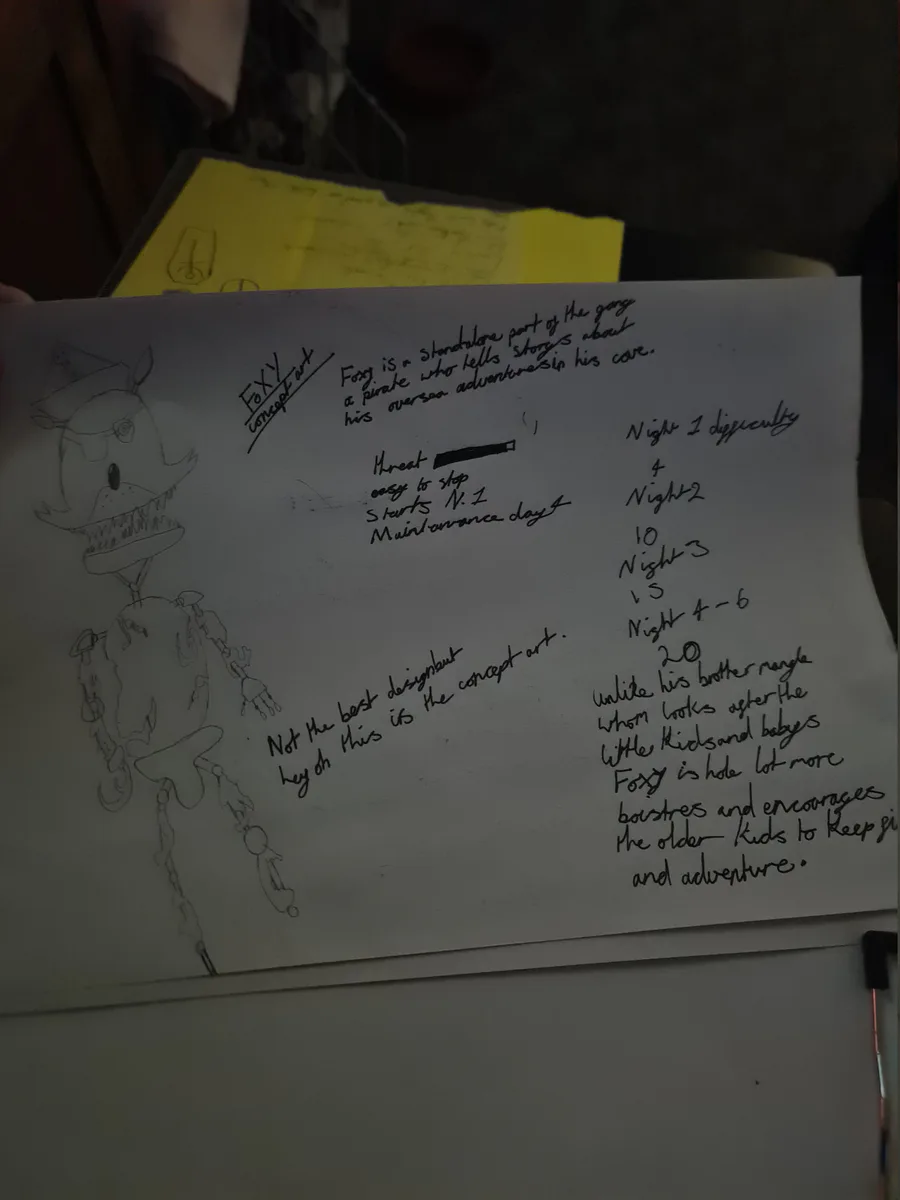 FOXY
concept art
Foxy is a standalone part of the gang
a pirate who tells storys about
his oversea adventures in his cove.
threat
easy to stop
Starts N.1
Maintanrance day 4
Night 1 difficulty
4
Night 2
10
Night 3
15
Night 4 - 6
20
unlike his brother mangle
whom looks after the
little kids and babys
Foxy is hole lot more
boistres and encourages
the older kids to keep gi
and adventure.
Not the best design but
hey oh this is the concept art.